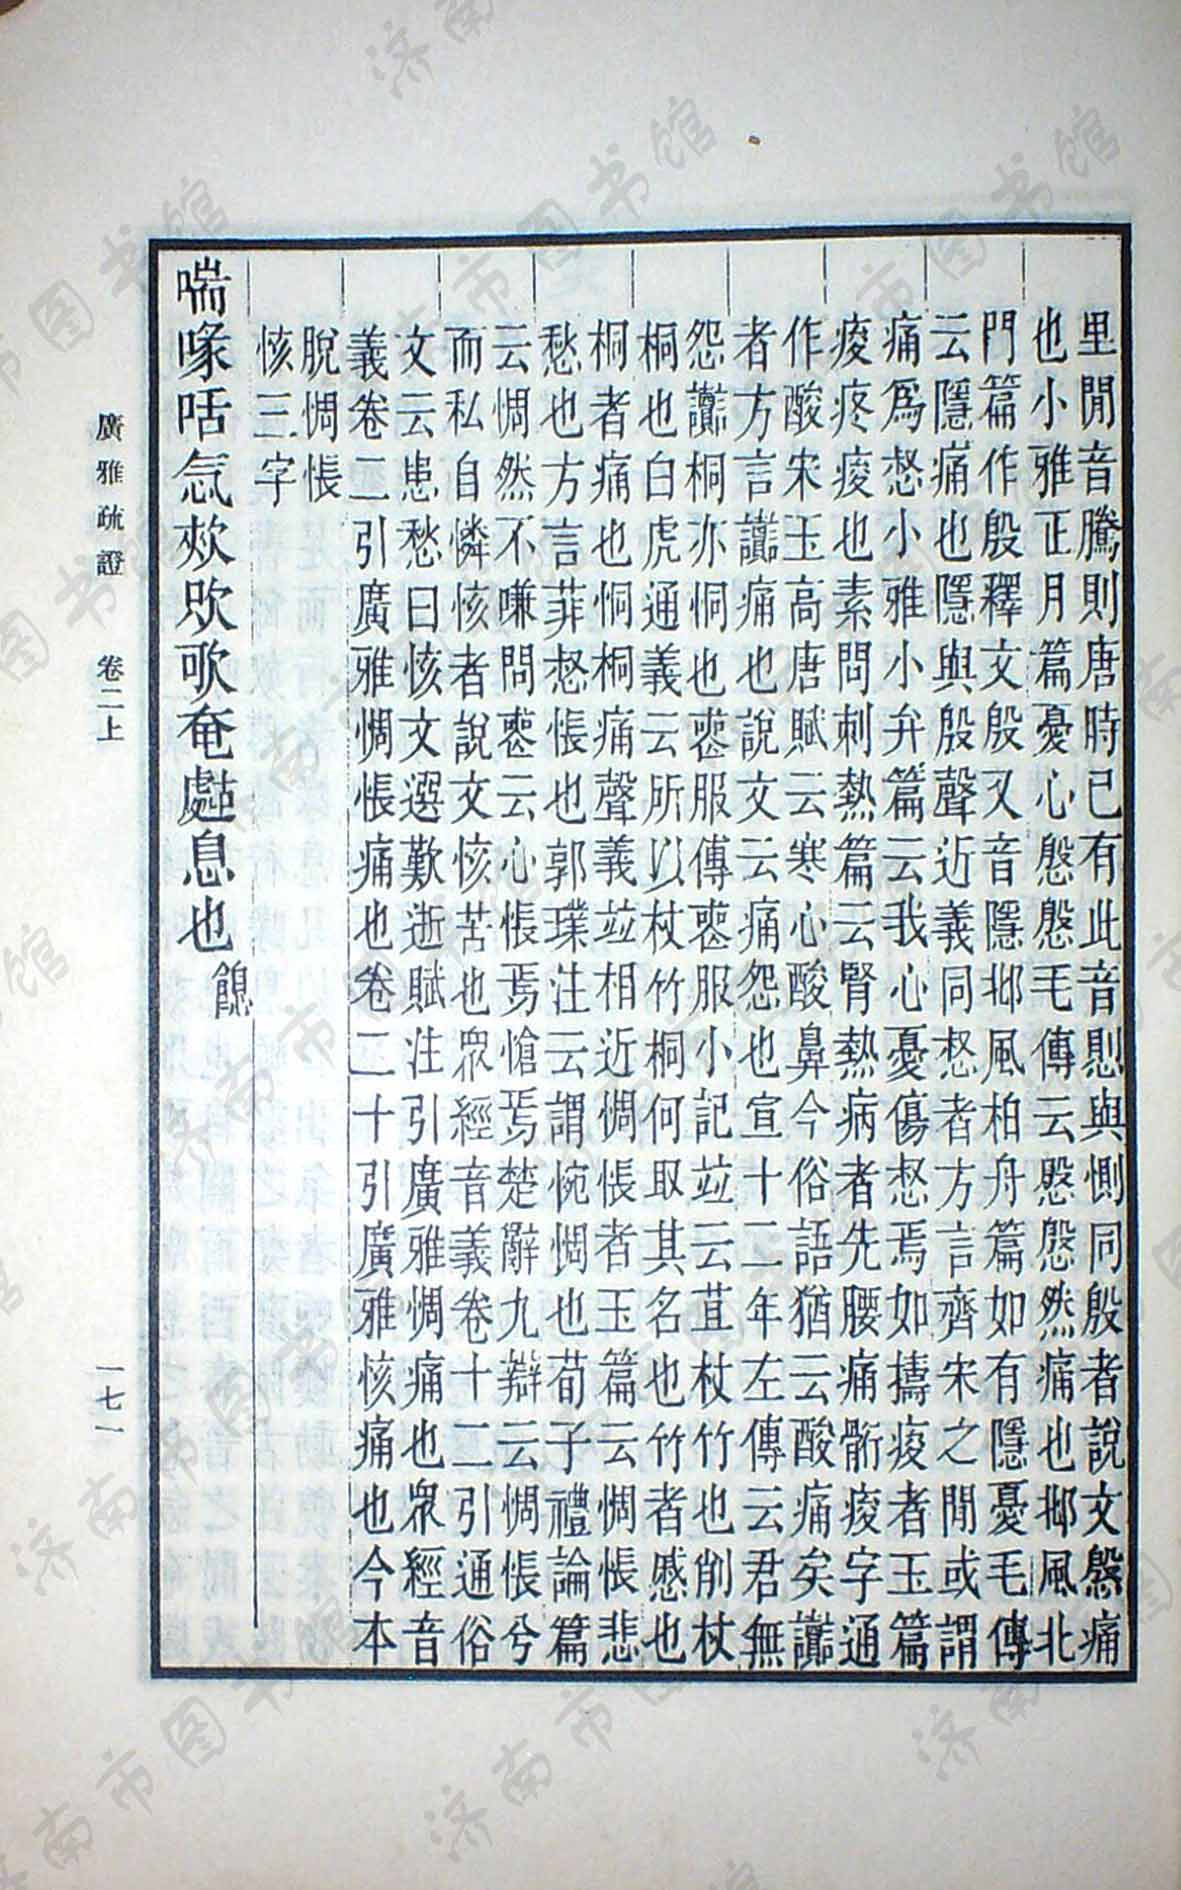 里閒音騰則唐時已有此音與惻同殷者說文慇痛
也小雅正月篇憂心慇慇毛傳云慇慇然痛也邶風北
門篇作殷釋文殷又音隱邶風柏舟篇如有隱憂毛傳
云隱痛也隱與殷聲近義同惄者方言齊宋之閒或謂
痛爲惄小雅小弁篇云我心憂傷惄焉如擣痠者玉篇
痠疼痠也素問刺熱篇云腎熱病者先腰痛䯒痠字通
作酸宋玉高唐賦云寒心酸鼻今俗語猶云酸痛矣讟
者方言讟痛也說文云痛怨也宣十二年左傳云君無
怨讟桐亦恫也喪服傳喪服小記竝云苴杖竹也削杖
桐也白虎通義云所以杖竹桐何取其名也竹者慼也
桐者痛也恫桐痛聲義竝相近惆悵者玉篇云惆悵悲
愁也方言菲惄悵也郭璞注云謂惋惆也荀子禮論篇
云惆然不嗛問喪云心悵焉愴焉楚辭九辯云惆悵兮
而私自憐㤥者說文㤥苦也衆經音義卷十二引通俗
文云患愁曰㤥文選歎逝賦注引廣雅惆痛也衆經音
義卷二引廣雅惆悵痛也卷二十引廣雅㤥痛也今本
脫惆悵
㤥三字
喘喙咶忥奄息也
廣雅疏證 卷二上
一七一
济南市图书馆